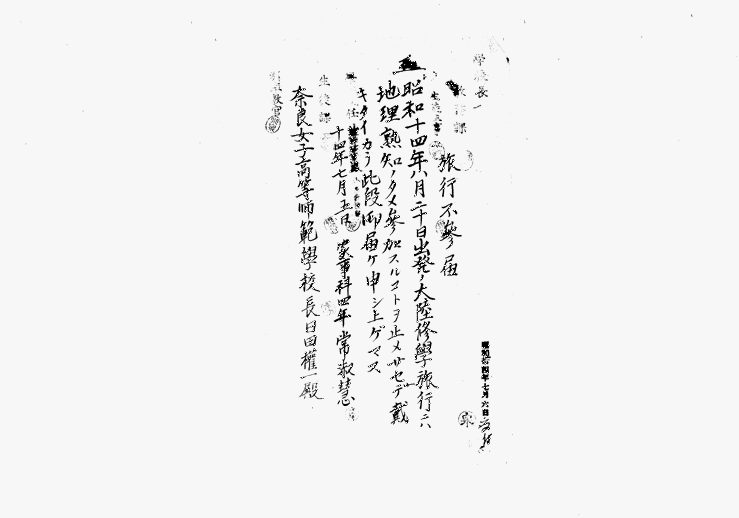 昭和拾四年七月六日
旅行不參届
昭和十四年八月二十日出発ノ大陸修學旅行ニハ
地理熟知ノタメ參加スルコトヲ止メサセデ戴
キタイカラ此段御届ケ申シ上ゲマス
十四年七月五日 家事科四年 常淑慧
奈良女子高等師範學校長日田權一殿
學校長
教務課
生徒課